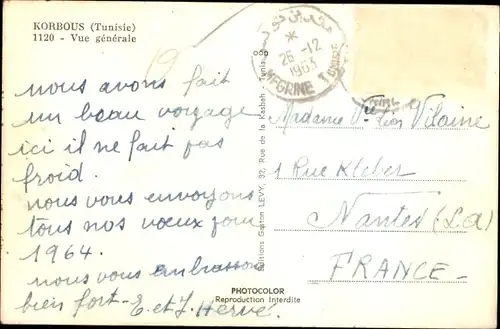 KORBOUS (Tunisie)
1120 - Vue générale
nous avons fait
un beau voyage
ici il ne fait pas
froid.
nous vous envoyons
tous nos voeux pour
1964.
nous vous embrassons
bien fort - E. et J. Hervé.
Editions Gaston LEVY, 32, Rue de la Kasbah - Tunis
PHOTOCOLOR
Reproduction Interdite
26 -12
1963
MEGRINE TUNISIE
Madame Vve Léon Vilaine
1 Rue Kléber
Nantes (L.A)
FRANCE